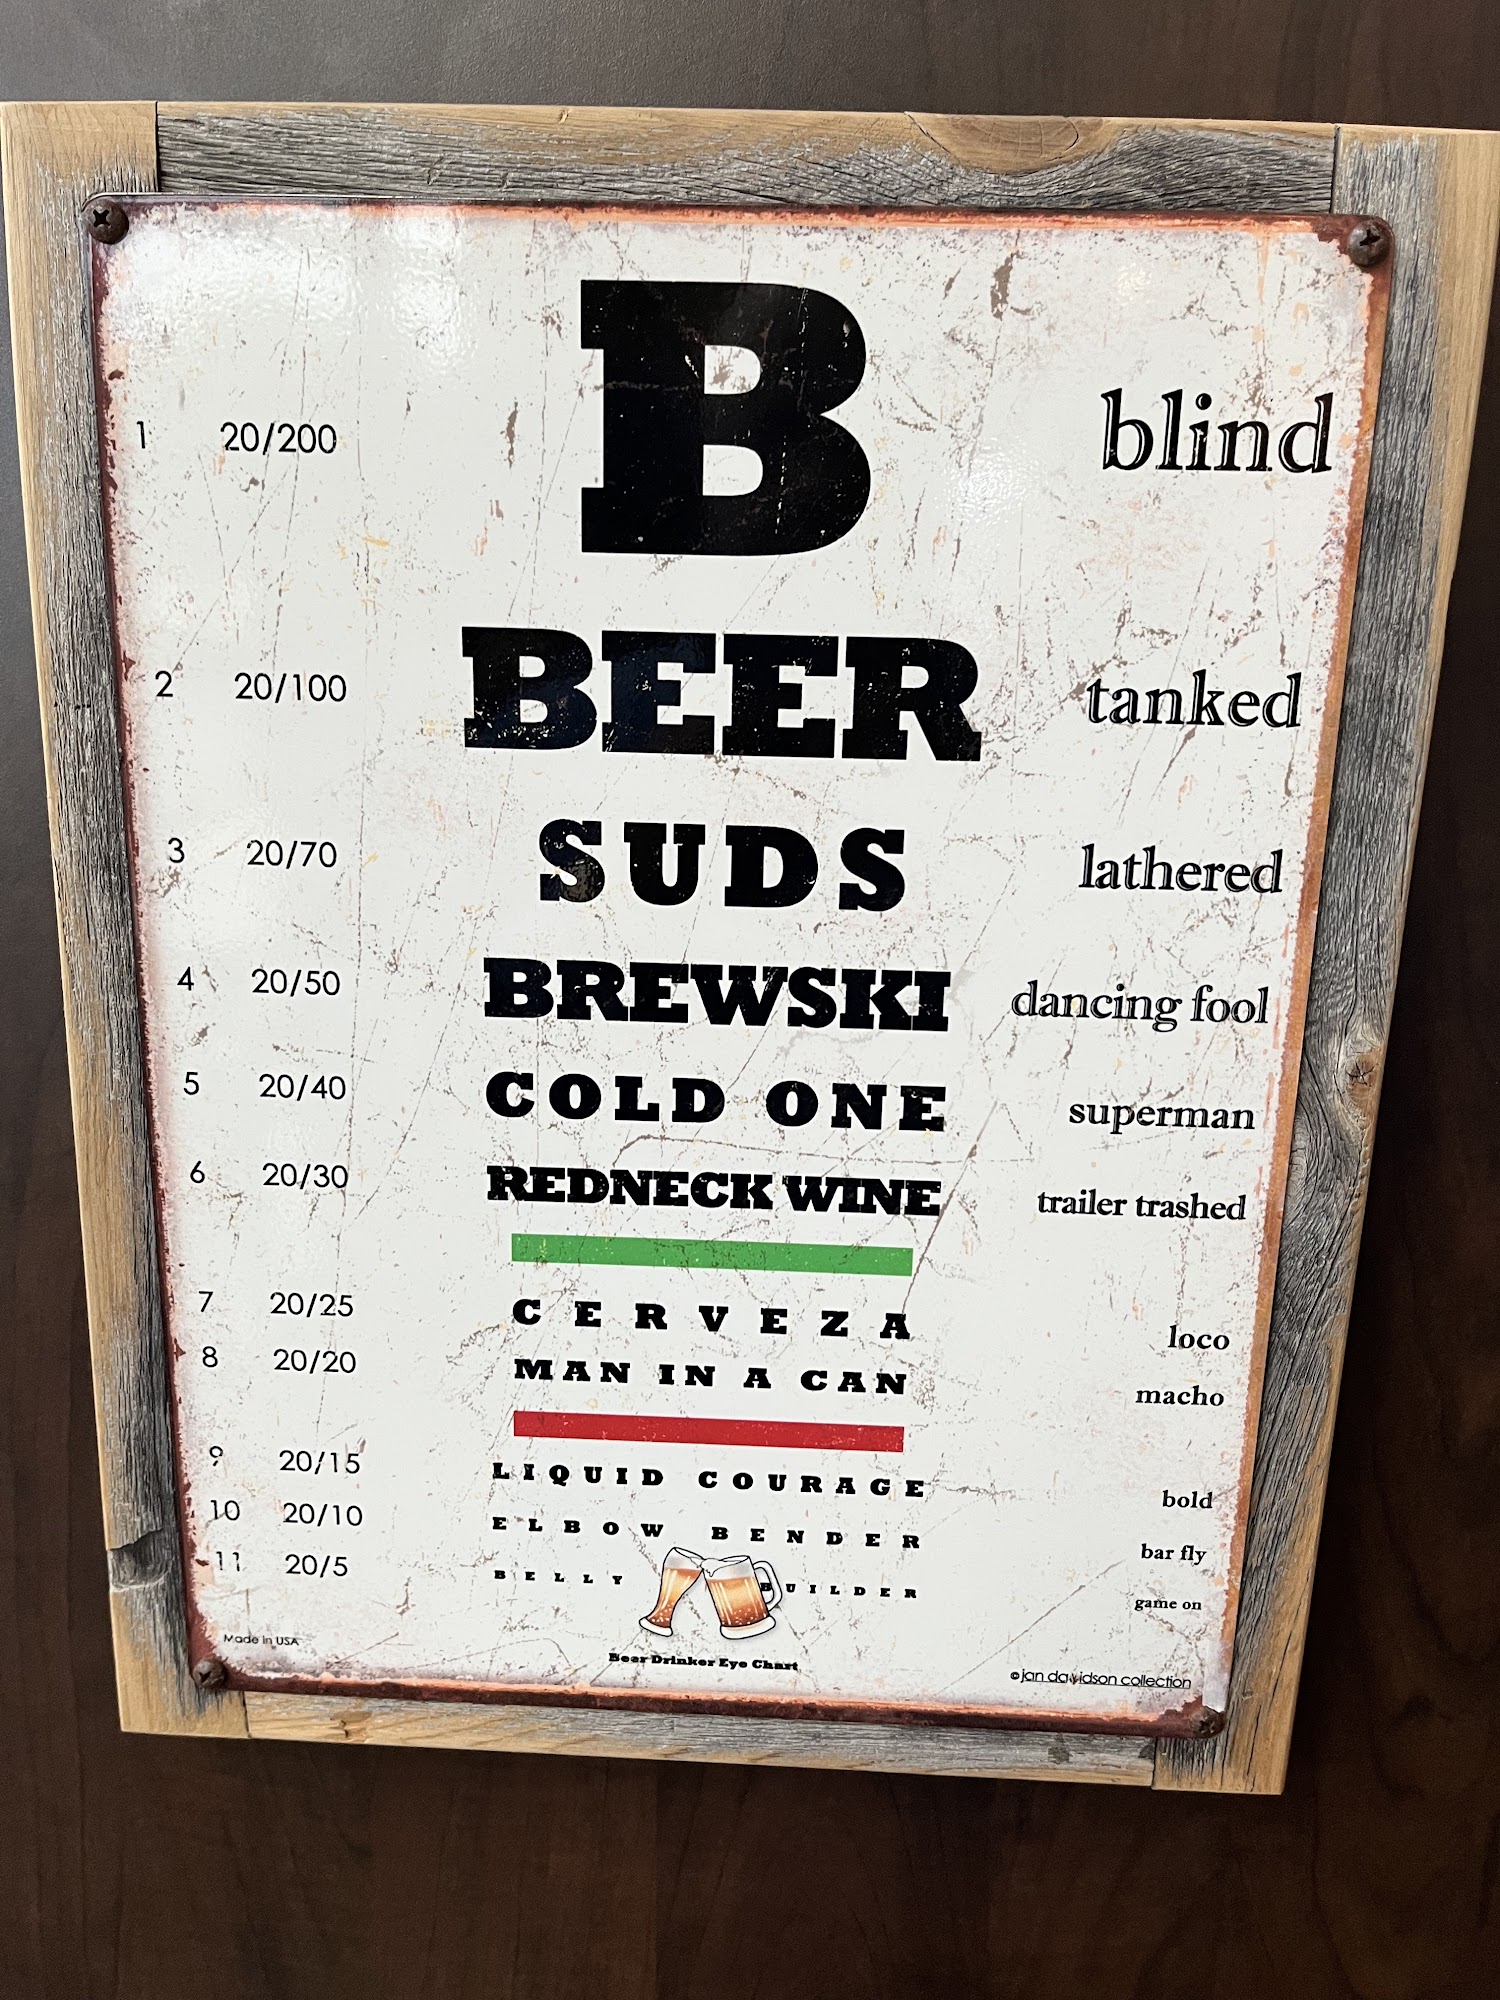 1 20/200 B blind
2 20/100 BEER tanked
3 20/70 SUDS lathered
4 20/50 BREWSKI dancing fool
5 20/40 COLD ONE superman
6 20/30 REDNECK WINE trailer trashed
7 20/25 CERVEZA loco
8 20/20 MAN IN A CAN macho
9 20/15 LIQUID COURAGE bold
10 20/10 ELBOW BENDER bar fly
11 20/5 BELLY BUILDER game on
Made in USA
Beer Drinker Eye Chart
©jan davidson collection